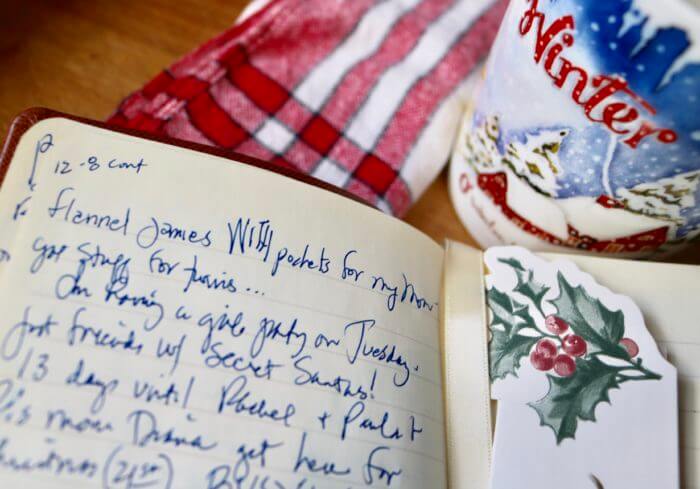 12-8 cont
flannel jamies WITH pockets for my Mom-
got stuff for twins...
Im having a girls party on Tuesday.
Just friends w/ Secret Santas!
13 days until Rachel + Paul +
mom Diana get here for
Christmas (21st)
Winter